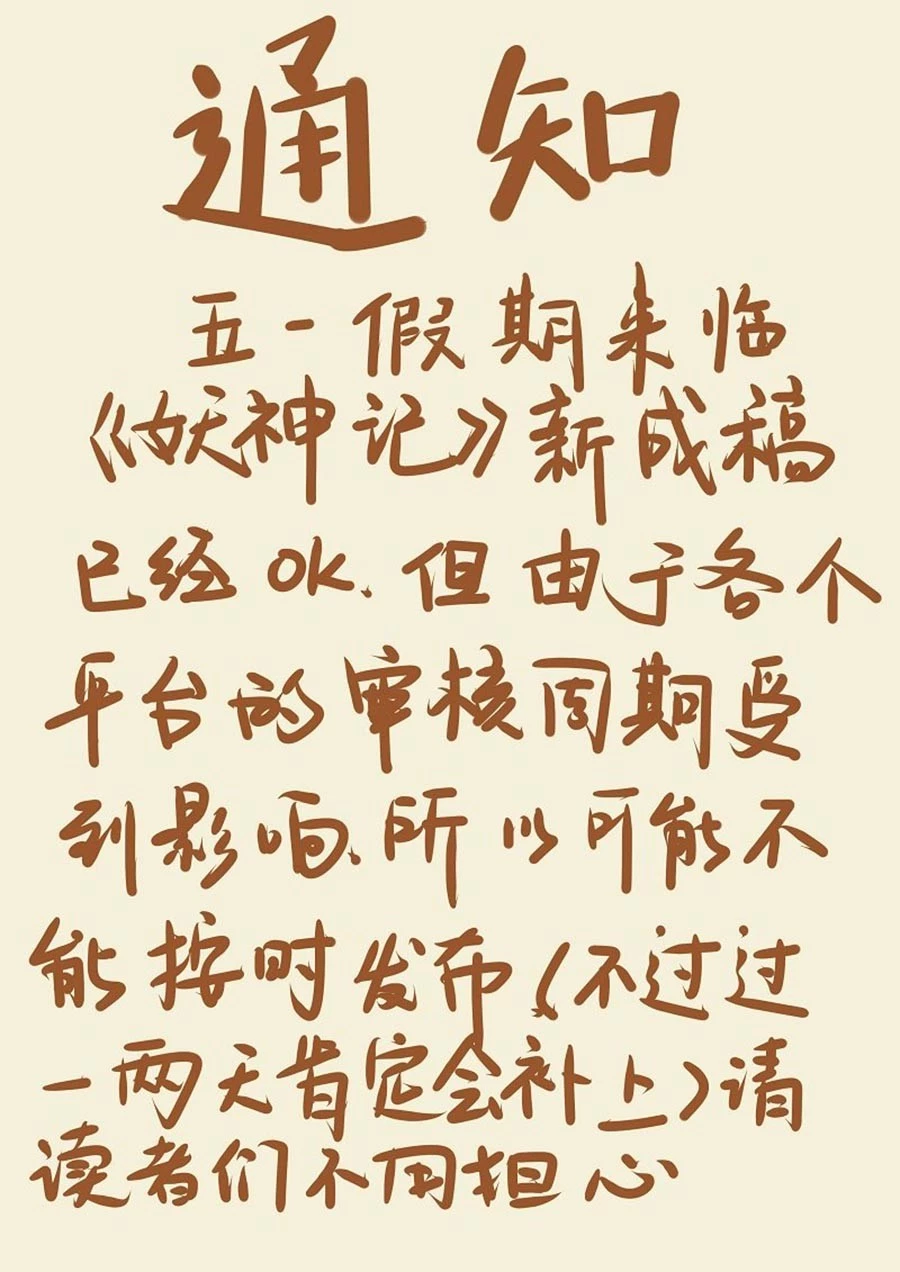 通知
五一假期来临
《妖神记》新成稿
已经OK.但由于各个
平台的审核周期受
到影响.所以可能不
能按时发布(不过过
一两天肯定会补上)请
读者们不用担心